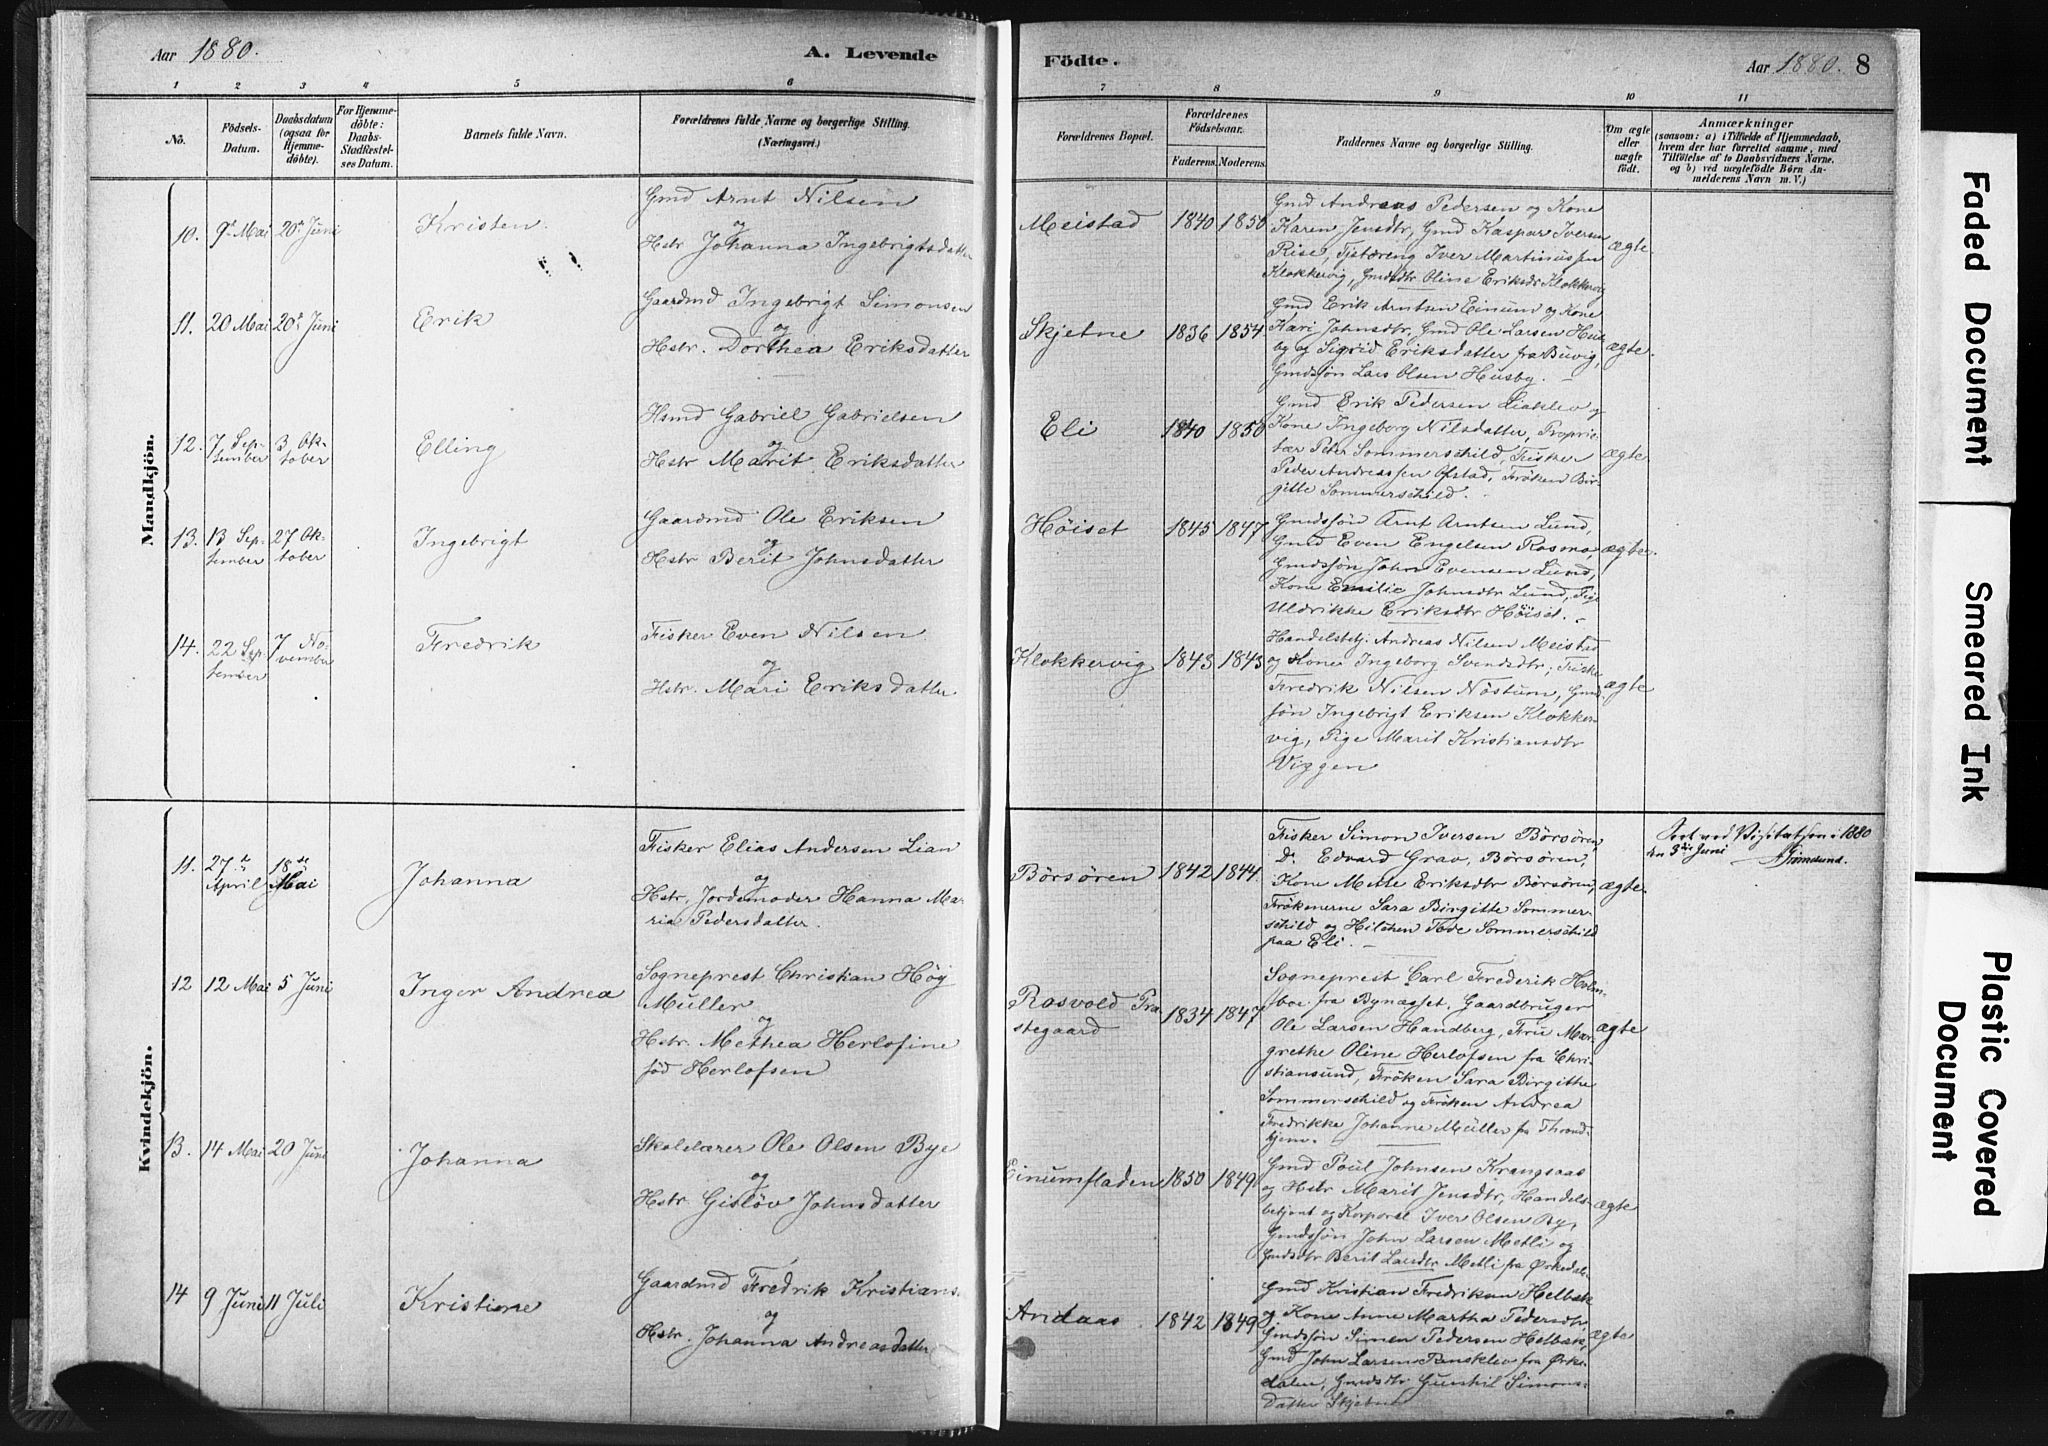 Aar 1880.
A. Levende
Födte.
Aar 1880. 8
1 2 3 4 5 6 7 8 9 10 11
No.
Födsels-
Datum.
Daabsdatum
(ogsaa for
Hjemme-
döbte).
For Hjemme-
döbte:
Daabs-
Stadfæstel-
ses Datum.
Barnets fulde Navn.
Forældrenes fulde Navne og borgerlige Stilling.
(Næringsvei.)
Forældrenes Bopæl.
Forældrenes
Födselsaar.
Faderens. Moderens.
Faddernes Navne og borgerlige Stilling.
Om ægte
eller
uægte
födt.
Anmærkninger
(saasom: a) i Tilfælde af Hjemmedaab,
hvem der har forrettet samme, med
Tilföielse af to Daabsvidners Navne.
og b) ved uægtefödte Börn An-
melderens Navn m. V.)
Mandkjön.
10. 9de Mai 20de Juni
Kristen
Gmd Arnt Nilsen
og
Hstr Johanna Ingebrigtsdatter
Meistad 1840 1850
Gmd Andreas Pedersen og Kone
Karen Jensdtr, Gmd Kaspar Iversen
Rise, Tjstdreng Iver Martinussen
Klokkervig, Gmdsdtr Oline Eriksdr Klokkervig
ægte.
11. 20 Mai 20de Juni
Erik
Gaardmd Ingebrigt Simonsen
og
Hstr. Dorthea Eriksdatter
Skjetne 1836 1854.
Gmd Erik Arntsen Einum og Kone
Kari Johnsdtr, Gmd Ole Larsen Hus-
by og Sigrid Eriksdatter fra Buvig,
Gmdssön Lars Olsen Husby. —
ægte.
12. 7 Sep-
tember
3 Ok-
tober
Elling
Hsmd Gabriel Gabrielsen
og
Hstr Marit Eriksdatter
Eli 1840 1850
Gmd Erik Pedersen Leaklev og
Kone Ingeborg Nilsdatter, Proprie-
tær Peter Sommerschild, Fisker
Peder Andreassen Ofstad, Fröken Bir-
gitte Sommerschild.
ægte.
13. 13 Sep-
tember
27 Ok-
tober
Ingebrigt
Gaardmd Ole Eriksen
og
Hstr Berit Johnsdatter
Höiset 1845 1847
Gmdssön Arnt Arntsen Lund,
Gmd Even Engelsen Rosmo,
Gmdssön John Evensen Lund,
Kone Emilie Johnsdtr Lund, Pige
Uldrikke Eriksdtr Höiset. —
ægte.
14. 22 Sep-
tember
7 No-
vember
Fredrik
Fisker Even Nilsen
og
Hstr. Mari Eriksdatter
Klokkervig 1843 1843
Handelsbetj. Andreas Nilsen Meistad
og Kone Ingeborg Svendsdtr; Fisker
Fredrik Nilsen Nöstum, Gmd-
sön Ingebrigt Eriksen Klokker-
vig, Pige Marit Kristiansdtr
Viggen
ægte
Kvindekjön.
11. 27de
April
18de
Mai
Johanna
Fisker Elias Andersen Lian
og
Hstr, Jordemoder Hanna Ma-
ria Pedersdatter.
Börsören 1842 1844.
Fisker Simon Iversen Börsören,
Do Edvard Grav, Börsören,
Kone Mette Eriksdtr Börsören,
Frökenerne Sara Birgitte Sommer-
schild og Hilchen Tode Sommerschild
paa Eli. —
ægte.
Seet ved Visitatsen i 1880
den 3die Juni
Grimelund.
12 12 Mai 5 Juni
Inger Andrea
Sogneprest Christian Höy
Müller
og
Hstr. Methea Herlofine
föd Herlofsen
Rosvold Præ-
stegaard
1834 1847
Sogneprest Carl Frederik Holm-
boe fra Bynæsset, Gaardbruger
Ole Larsen Handberg, Fru Mar-
grethe Oline Herlofsen fra Chri-
stiansund, Fröken Sara Birgitte
Sommerschild og Fröken Andrea
Fredrikke Johanne Müller fra Thrond-
hjem.
ægte
13. 14 Mai 20 Juni
Johanna
Skolelærer Ole Olsen Bye
og
Hstr Gislöv Johnsdatter
Einumfladen 1850 1849.
Gmd Poul Johnsen Krangsaas
og Hstr Marit Jensdtr, Handels-
betjent og Korporal Iver Olsen By,
Gmdssön John Larsen Metli og
Gmdsdtr Berit Larsdtr Metli fra Örkedal.
ægte
14 9 Juni 11 Juli
Kristine
Gaardmd Fredrik Kristians.
og
Hstr. Johanna Andreasdatter
Andaas 1842 1849
Gmd Kristian Fredriksen Helbak
og Kone Anne Martha Pedersdtr,
Gmdssön Simen Pedersen Helbak,
Gmd John Larsen Rensklev fra Örke-
dalen, Gmdsdtr Gunhil Simons-
datter Skjetne
ægte
Faded Document
Smeared Ink
Plastic Covered
Document